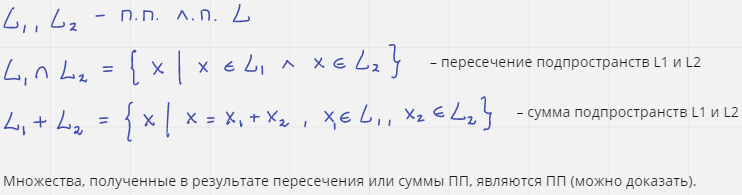 L₁, L₂ - п.п. л.п. L
L₁ ∩ L₂ = { x | x ∈ L₁ ∧ x ∈ L₂ } – пересечение подпространств L1 и L2
L₁ + L₂ = { x | x = x₁ + x₂ , x₁ ∈ L₁, x₂ ∈ L₂ } – сумма подпространств L1 и L2
Множества, полученные в результате пересечения или суммы ПП, являются ПП (можно доказать).